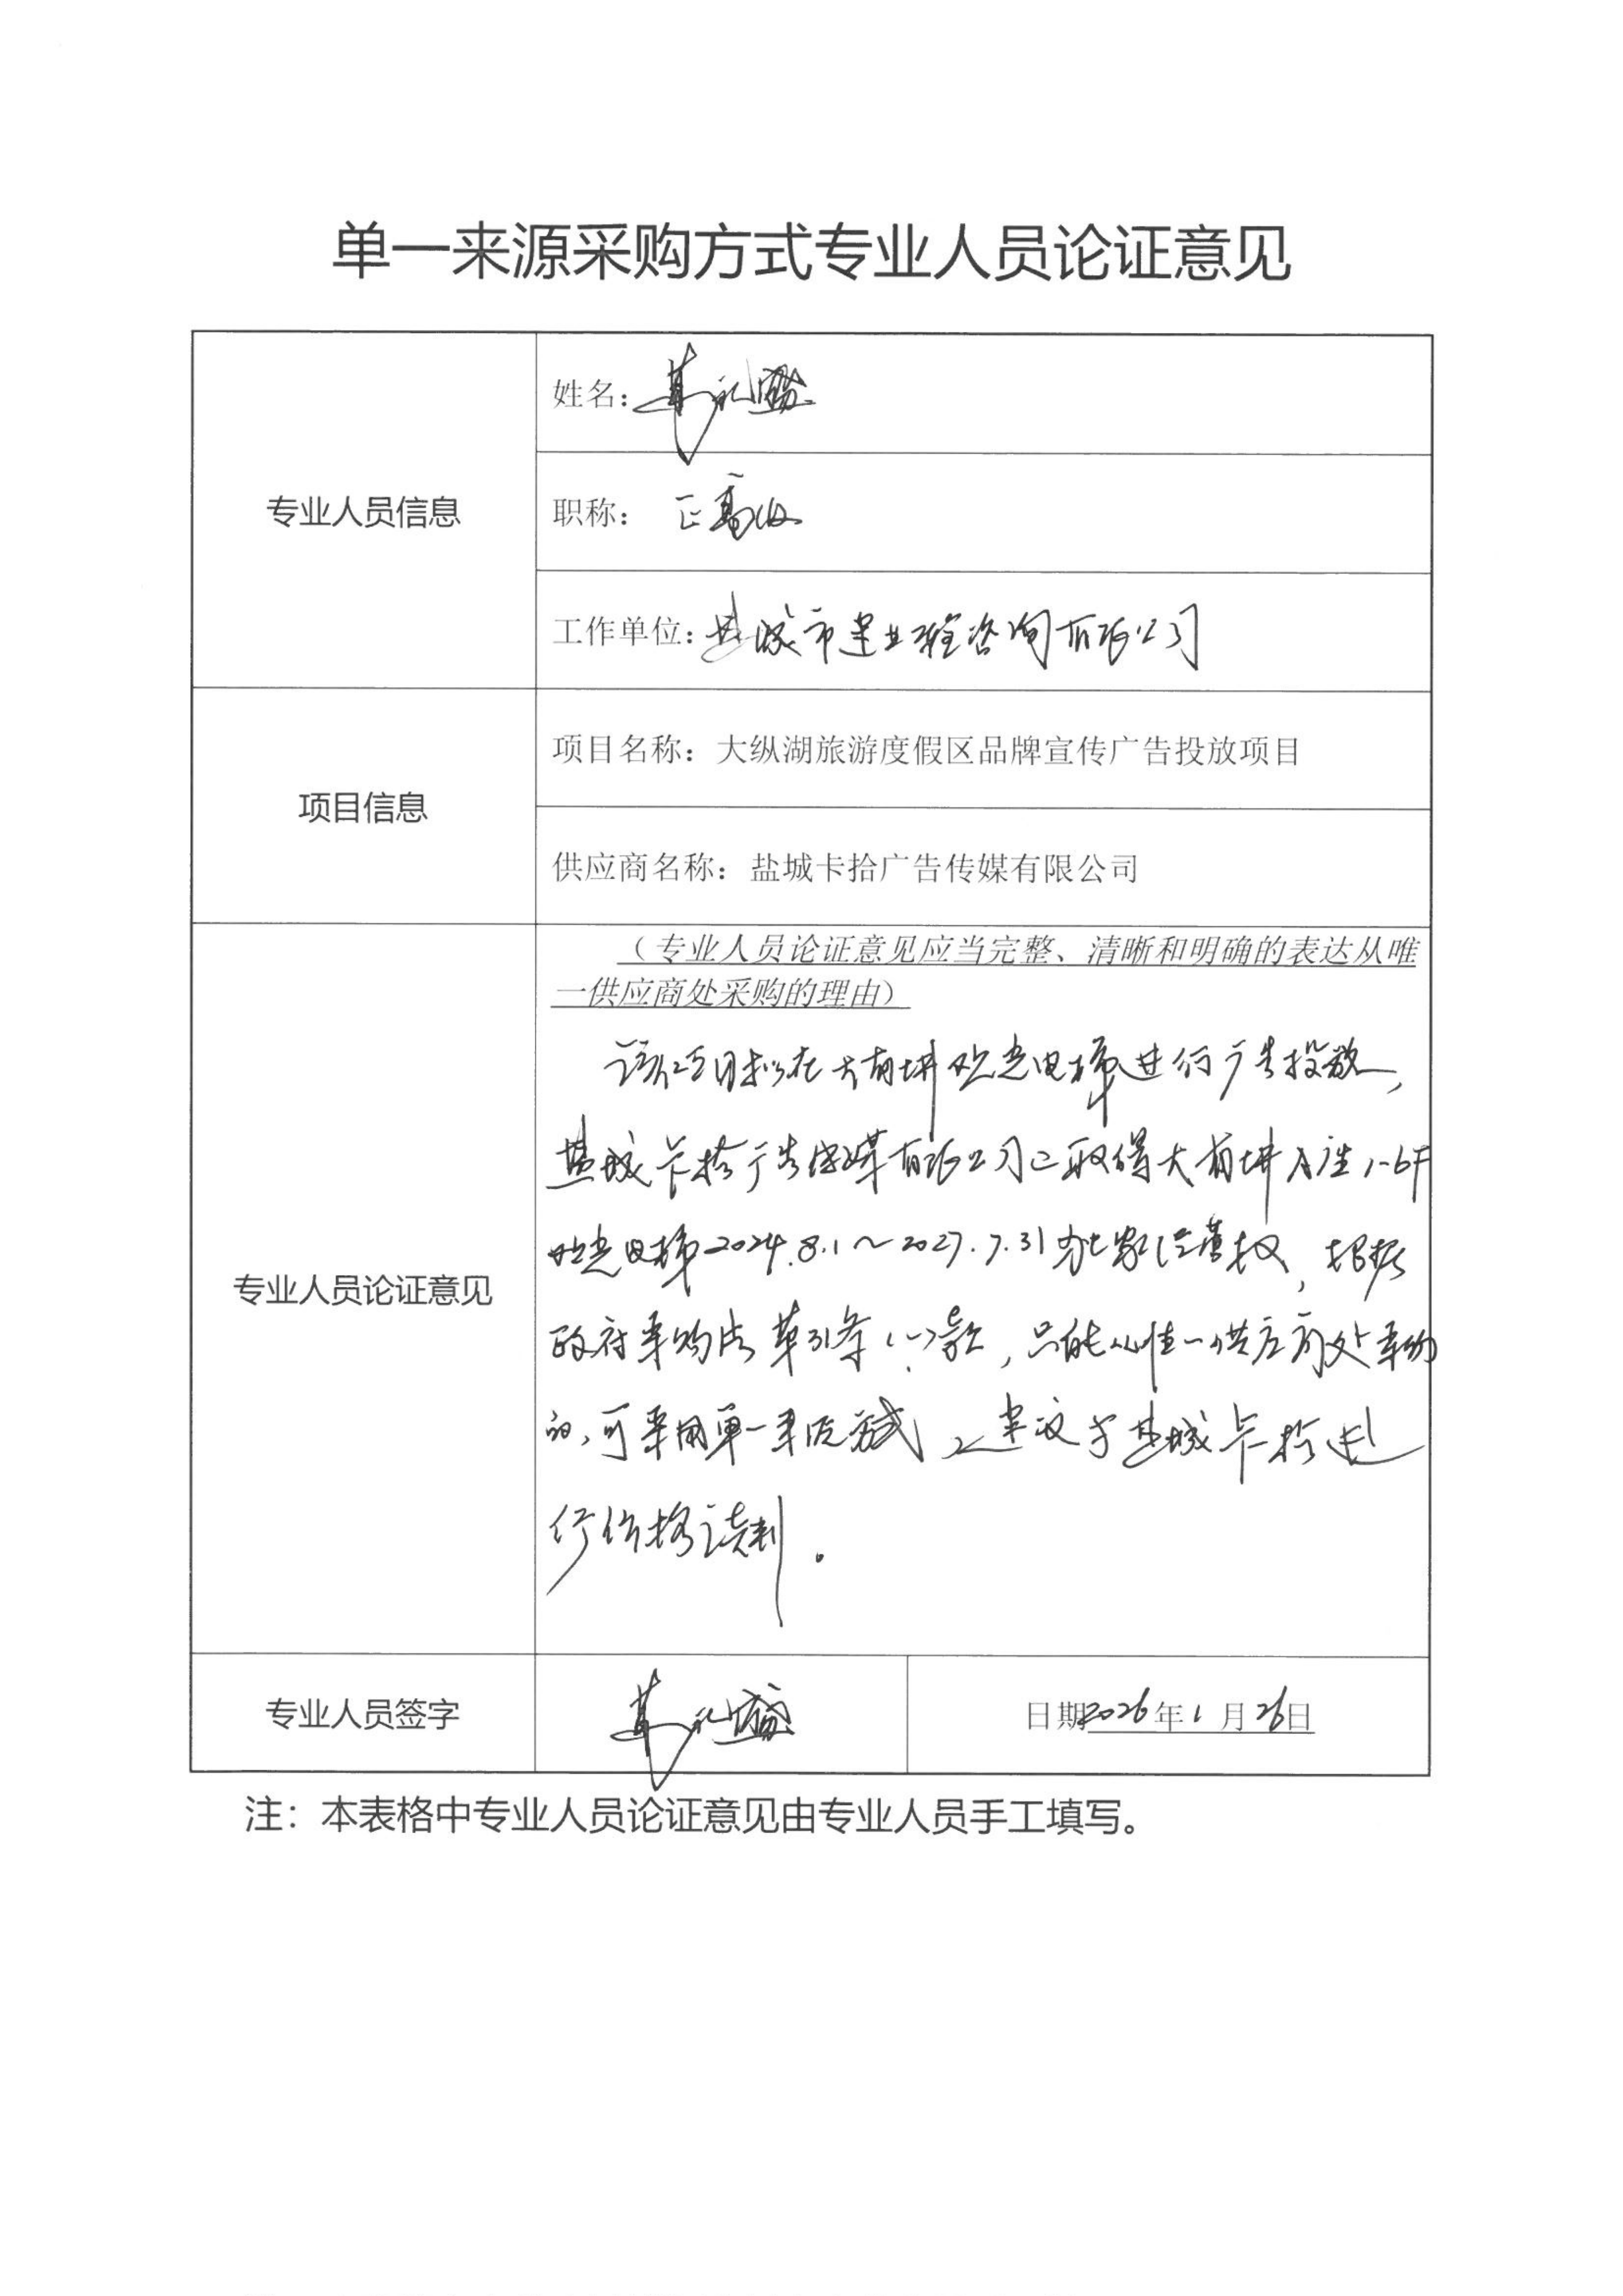 单一来源采购方式专业人员论证意见
专业人员信息
姓名：
职称： 正高级
工作单位：盐城市建业工程咨询有限公司
项目信息
项目名称：大纵湖旅游度假区品牌宣传广告投放项目
供应商名称：盐城卡拾广告传媒有限公司
专业人员论证意见
（专业人员论证意见应当完整、清晰和明确的表达从唯
一供应商处采购的理由）
该项目拟在大有坊观光电梯进行广告投放，
盐城卡拾广告传媒有限公司已取得大有坊 1-6F
观光电梯2024.8.1～2027.7.31独家经营权，根据
政府采购法第31条(一)款，只能从唯一供应商处采购
的，可采用单一来源方式，建议与盐城卡拾进
行价格谈判。
专业人员签字
日期2026年1月26日
注：本表格中专业人员论证意见由专业人员手工填写。